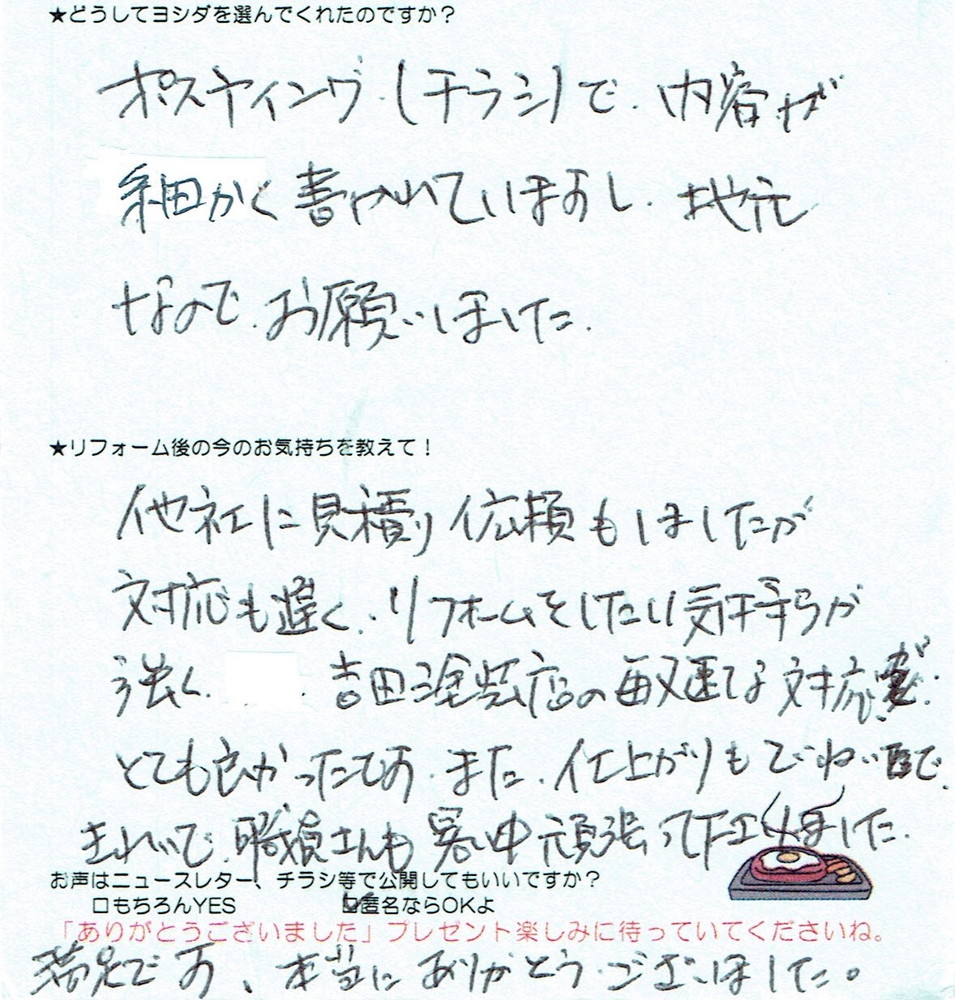 ★どうしてヨシダを選んでくれたのですか？
ポスティング（チラシ）で、内容が
細かく書かれていますし、地元
なので、お願いしました。
★リフォーム後の今のお気持ちを教えて！
他社に見積り依頼もしましたが
対応も遅く、リフォームをしたい気持ちが
強く、吉田塗装店の敏速な対応が
とても良かったです。また、仕上がりもていねいで、
きれいで、職員さんも暑い中頑張って下さいました。
お声はニュースレター、チラシ等で公開してもいいですか？
□もちろんYES ☑匿名ならOKよ
「ありがとうございました」プレゼント楽しみに待っていてくださいね。
満足です、本当にありがとうございました。